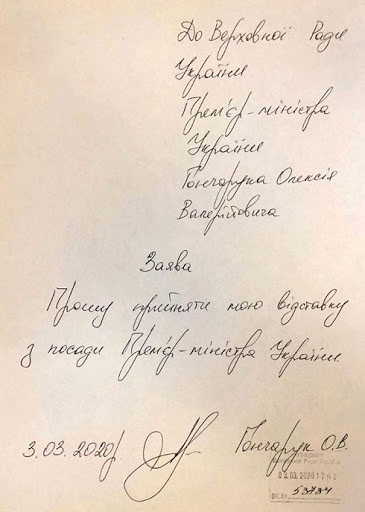 До Верховної Ради
України
Прем'єр-міністра
України
Гончарука Олексія
Валерійовича
Заява
Прошу прийняти мою відставку
з посади Прем'єр-міністра України.
3.03.2020р. Гончарук О.В.
03.03.2020 12
53734